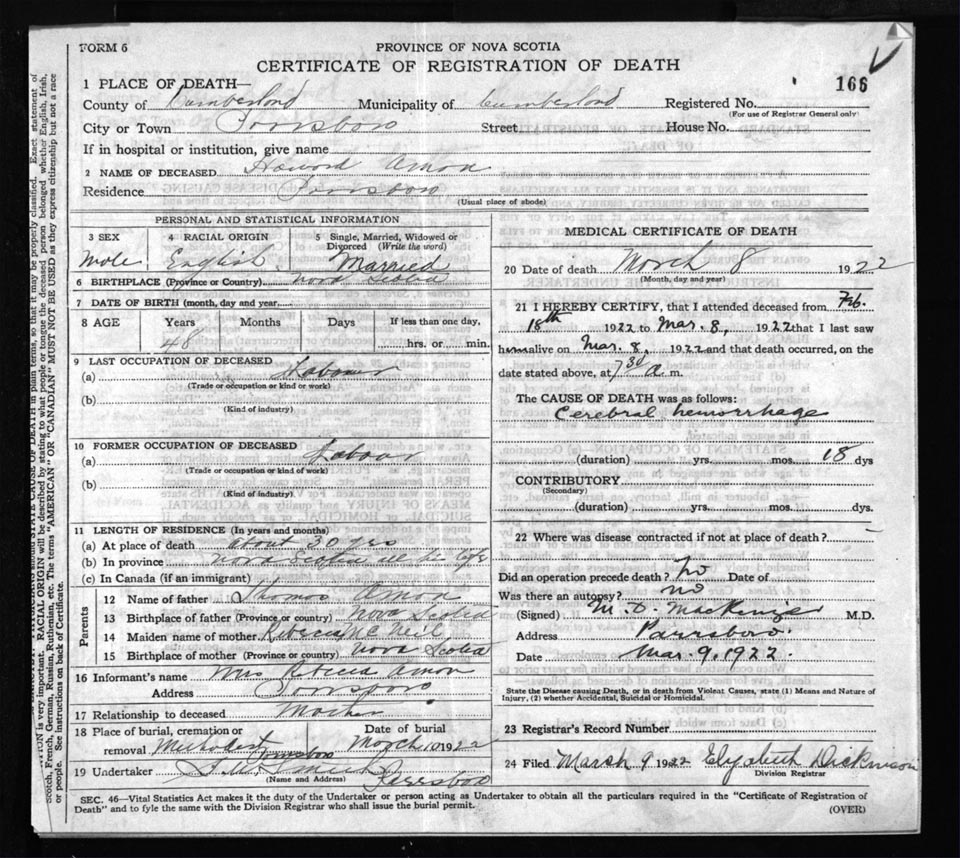 FORM 6
PROVINCE OF NOVA SCOTIA
CERTIFICATE OF REGISTRATION OF DEATH
166
1 PLACE OF DEATH—
County of Cumberland Municipality of Cumberland Registered No.
(For use of Registrar General only)
City or Town Parrsboro Street House No.
If in hospital or institution, give name
2 NAME OF DECEASED Howard Amon
Residence Parrsboro
(Usual place of abode)
PERSONAL AND STATISTICAL INFORMATION
3 SEX 4 RACIAL ORIGIN 5 Single, Married, Widowed or Divorced (Write the word)
Male English Married
6 BIRTHPLACE (Province or Country) Nova Scotia
7 DATE OF BIRTH (month, day and year)
8 AGE Years Months Days If less than one day,
48 hrs. or min.
9 LAST OCCUPATION OF DECEASED
(a) Labourer
(Trade or occupation or kind or work)
(b)
(Kind of industry)
10 FORMER OCCUPATION OF DECEASED
(a) Labour
(Trade or occupation or kind of work)
(b)
(Kind of industry)
11 LENGTH OF RESIDENCE (In years and months)
(a) At place of death about 30 yrs
(b) In province Nova Scotia all his life
(c) In Canada (if an immigrant)
Parents
12 Name of father Thomas Amon
13 Birthplace of father (Province or country) Nova Scotia
14 Maiden name of mother Rebecca McNeil
15 Birthplace of mother (Province or country) Nova Scotia
16 Informant's name Mrs Rebecca Amon
Address Parrsboro
17 Relationship to deceased Mother
18 Place of burial, cremation or removal Date of burial
Methodist Parrsboro March 10 1922
19 Undertaker Parrsboro
(Name and Address)
MEDICAL CERTIFICATE OF DEATH
20 Date of death March 8 1922
(Month, day and year)
21 I HEREBY CERTIFY, that I attended deceased from Feb.
18th 1922 to Mar. 8, 1922 that I last saw
him alive on Mar. 8, 1922 and that death occurred, on the
date stated above, at 7 30 a.m.
The CAUSE OF DEATH was as follows:
Cerebral hemorrhage
(duration) yrs. mos. 18 dys
CONTRIBUTORY
(Secondary)
(duration) yrs. mos. dys.
22 Where was disease contracted if not at place of death?
Did an operation precede death? No Date of
Was there an autopsy? no
(Signed) M. D. MacKenzie M.D.
Address Parrsboro.
Date Mar. 9, 1922.
State the Disease causing Death, or in death from Violent Causes, state (1) Means and Nature of
Injury, (2) whether Accidental, Suicidal or Homicidal.
23 Registrar's Record Number
24 Filed March 9 1922 Elizabeth Dickinson
Division Registrar
SEC. 46—Vital Statistics Act makes it the duty of the Undertaker or person acting as Undertaker to obtain all the particulars required in the "Certificate of Registration of
Death" and to fyle the same with the Division Registrar who shall issue the burial permit.
(OVER)
CAUSE OF DEATH in plain terms, so that it may be properly classified. Exact statement of
is very important. RACIAL ORIGIN will be described by stating to what people or tongue the deceased person belonged whether English, Irish,
Scotch, French, German, Russian, Ruthenian, etc. The terms "AMERICAN" OR "CANADIAN" MUST NOT BE USED as they express citizenship but not a race
or people. See instructions on back of Certificate.